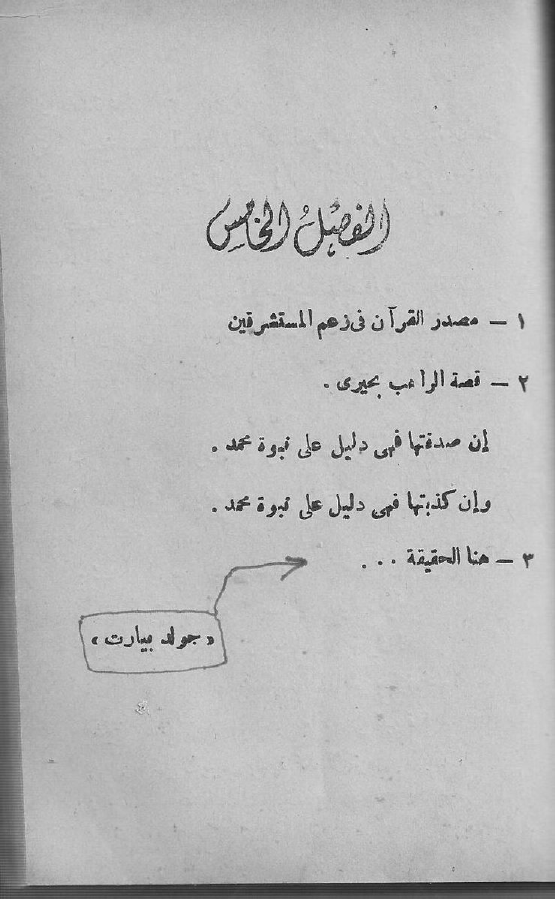 الفصل الخامس
١ – مصدر القرآن فى زعم المستشرقين
٢ – قصة الراهب بحيرى .
إن صدقتها فهى دليل على نبوة محمد .
وإن كذبتها فهى دليل على نبوة محمد .
٣ – هنا الحقيقة . . .
« جولد بيارت »